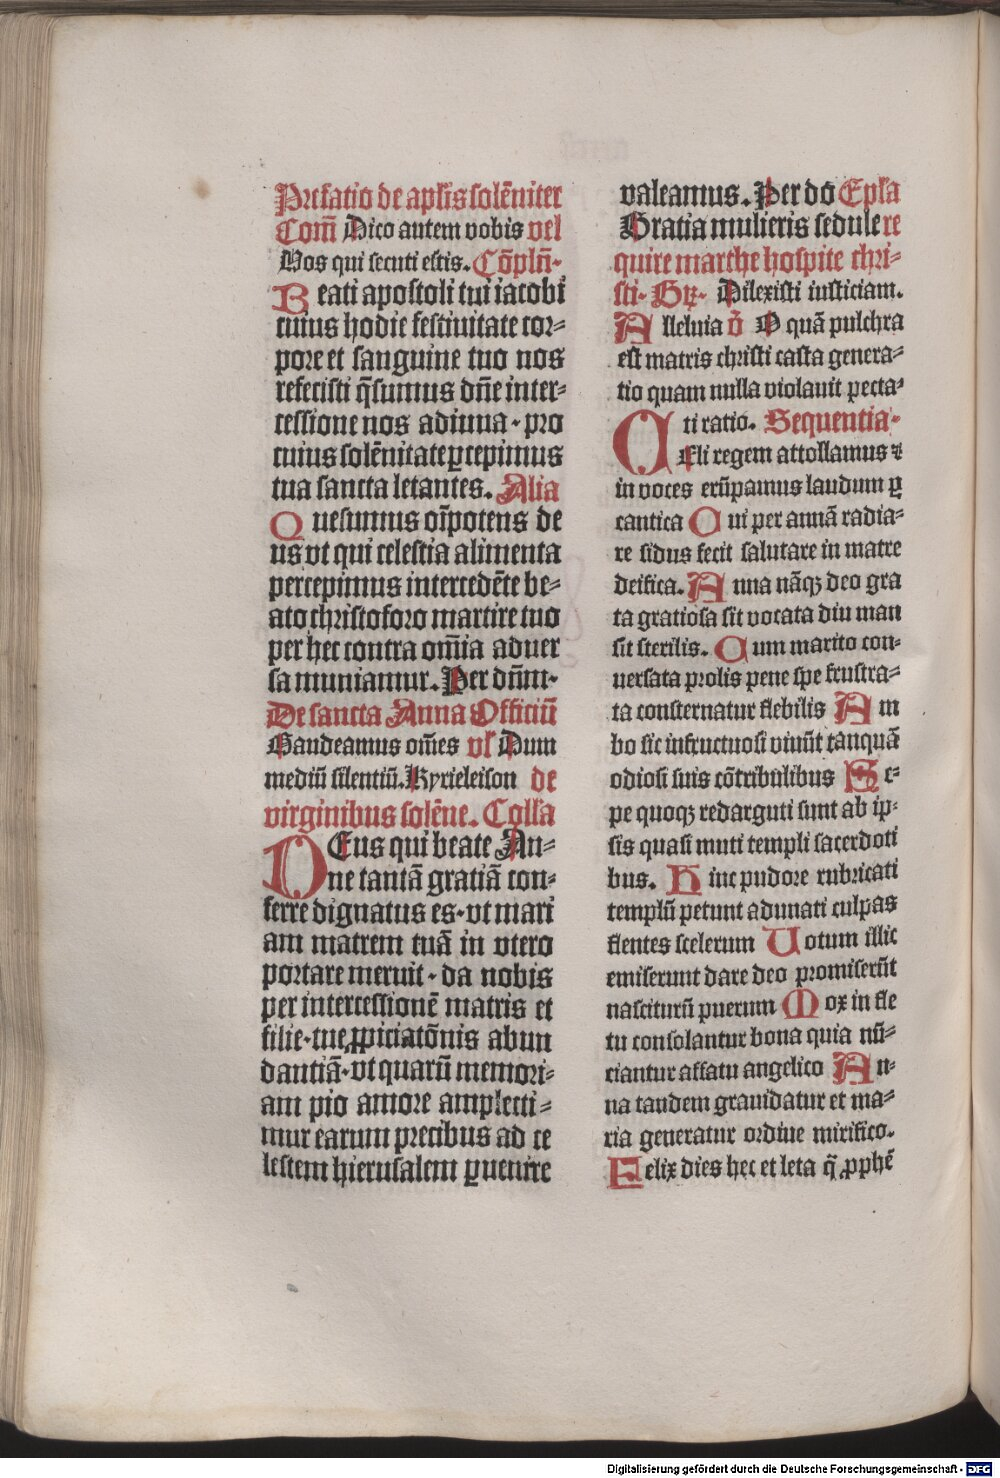 Prefatio de apl̄is solēniter
Com̄ Dico autem vobis vel
Vos qui secuti estis. Cōpln̄.
Beati apostoli tui iacobi
cuius hodie festiuitate cor⸗
pore et sanguine tuo nos
refecisti q̄sumus dn̄e inter⸗
cessione nos adiuua. pro
cuius solēnitate ꝑcepimus
tua sancta letantes. Alia
Quesumus oīpotens de
us vt qui celestia alimenta
percepimus intercedēte be⸗
ato christoforo martire tuo
per hec contra om̄ia aduer
sa muniamur. Per dn̄m.
De sancta Anna Officiū
Gaudeamus om̄es vl̄ Dum
mediū silentiū. Kyrieleison de
virginibus solēne. Coll̄a
DEus qui beate An⸗
ne tantā gratiā con⸗
ferre dignatus es. vt mari
am matrem tuā in vtero
portare meruit. da nobis
per intercessionē matris et
filie. tue ꝓpiciatōnis abun
dantiā. vt quarū memori⸗
am pio amore amplecti⸗
mur earum precibus ad ce
lestem hierusalem ꝑuenire
valeamus. Per do Epl̄a
Gratia mulieris sedule re
quire marthe hospite chri⸗
sti. Gr̄. Dilexisti iusticiam.
Alleluia v̄ O quā pulchra
est matris christi casta genera⸗
tio quam nulla violauit pecca⸗
ti ratio. Sequentia.
CEli regem attollamus ⁊
in voces erūpamus laudum ꝑ
cantica Qui per annā radia⸗
re sidus fecit salutare in matre
deifica. Anna nāqꝫ deo gra
ta gratiosa sit vocata diu man
sit sterilis. Cum marito con⸗
uersata prolis pene spe frustra⸗
ta consternatur flebilis Am
bo sic infructuosi viuūt tanquā
odiosi suis cōtribulibus Se⸗
pe quoqꝫ redarguti sunt ab ip⸗
sis quasi muti templi sacerdoti
bus. Hinc pudore rubricati
templū petunt adunati culpas
flentes scelerum Uotum illic
emiserunt dare deo promiserūt
nasciturū puerum Mox in fle
tu consolantur bona quia nū⸗
ciantur affatu angelico An⸗
na tandem grauidatur et ma⸗
ria generatur ordine mirifico.
Felix dies hec et leta q̄ ꝓphē
Digitalisierung gefördert durch die Deutsche Forschungsgemeinschaft - DFG